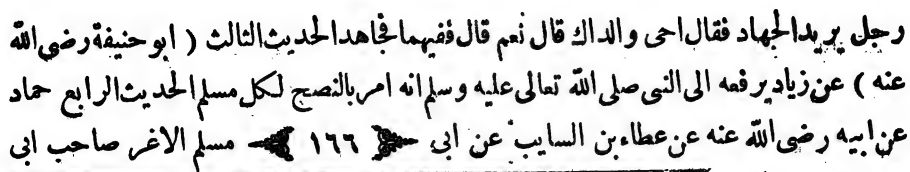 رجل يريد الجهاد فقال احى والداك قال نعم قال ففيهما فجاهد الحديث الثالث ( ابو حنيفة رضى الله
عنه ) عن زياد يرفعه الى النبى صلى الله تعالى عليه وسلم انه امر بالنصح لكل مسلم الحديث الرابع حماد
عن ابيه رضى الله عنه عن عطاء بن السايب عن ابى ﴿ ١٦٦ ﴾ مسلم الاغر صاحب ابى